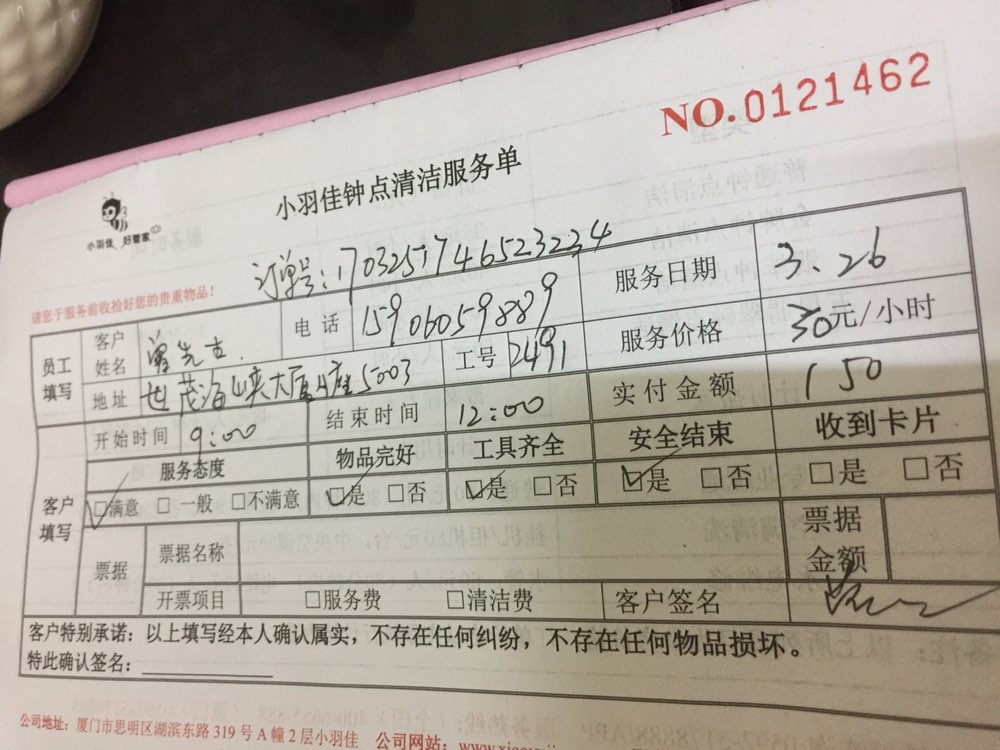 NO.0121462
小羽佳钟点清洁服务单
小羽佳 好管家
订单号:1703251746523234
请您于服务前收拾好您的贵重物品!
员工填写 客户姓名 曾先生. 电话 15906059889 服务日期 3.26
地址 世茂海峡大厦A座5003 工号 2491 服务价格 30元/小时
客户填写 开始时间 9:00 结束时间 12:00 实付金额 150
服务态度 物品完好 工具齐全 安全结束 收到卡片
□满意 □一般 □不满意 □是 □否 □是 □否 □是 □否 □是 □否
票据 票据名称 票据金额
开票项目 □服务费 □清洁费 客户签名
客户特别承诺:以上填写经本人确认属实,不存在任何纠纷,不存在任何物品损坏。
特此确认签名:
公司地址:厦门市思明区湖滨东路319号A幢2层小羽佳 公司网站: